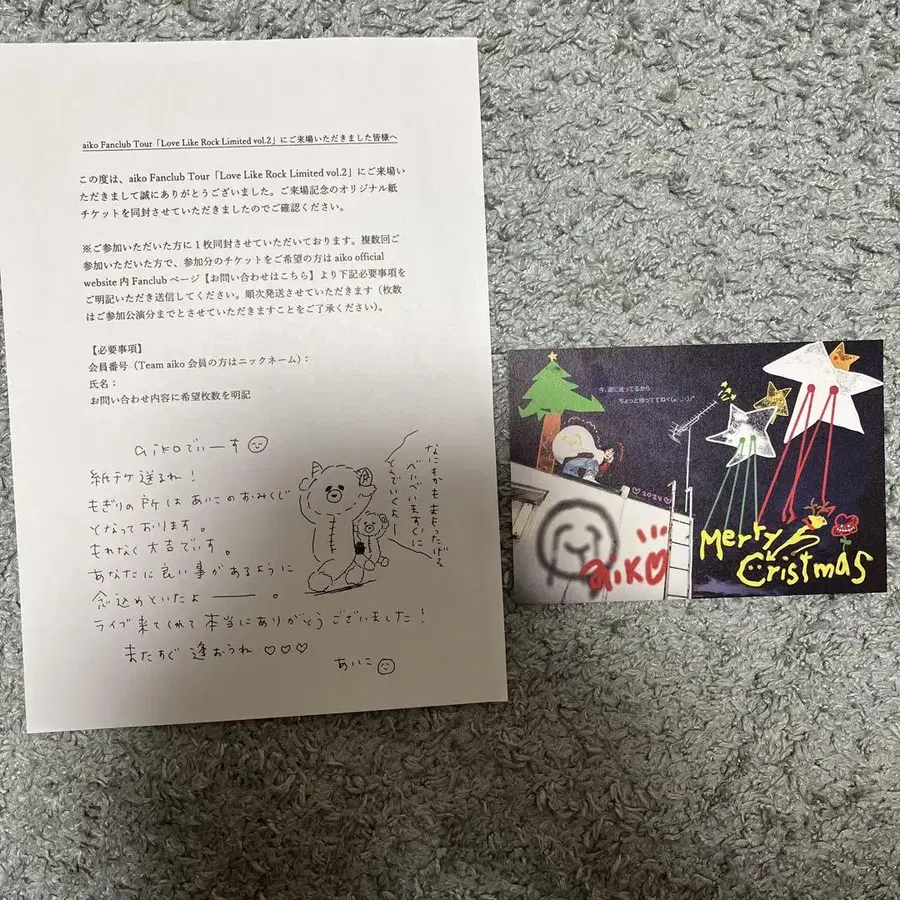 aiko Fanclub Tour「Love Like Rock Limited vol.2」にご来場いただきました皆様へ
この度は、aiko Fanclub Tour「Love Like Rock Limited vol.2」にご来場い
ただきまして誠にありがとうございました。ご来場記念のオリジナル紙
チケットを同封させていただきましたのでご確認ください。
※ご参加いただいた方に1枚同封させていただいております。複数回ご
参加いただいた方で、参加分のチケットをご希望の方は aiko official
website 内 Fanclub ページ【お問い合わせはこちら】より下記必要事項を
ご明記いただき送信してください。順次発送させていただきます（枚数
はご参加公演分までとさせていただきますことをご了承ください)。
【必要事項】
会員番号（Team aiko 会員の方はニックネーム）:
氏名:
お問い合わせ内容に希望枚数を明記
aikoでぃーす
紙チケ送るね!
もぎりの所はあいこのおみくじ
となっております。
もれなく大吉でいす。
あなたに良い事があるように
念込めといたよ――。
ライブ来てくれて本当にありがとうございました!
またすぐ逢おうね♡♡♡
あいこ
なにもかもまもったげる
べいべいますぐに
とんでいくよー
今、逆に送ってるから
ちょっと待っててねぐ
♡2024♡
aiko
Merry
Cristmas